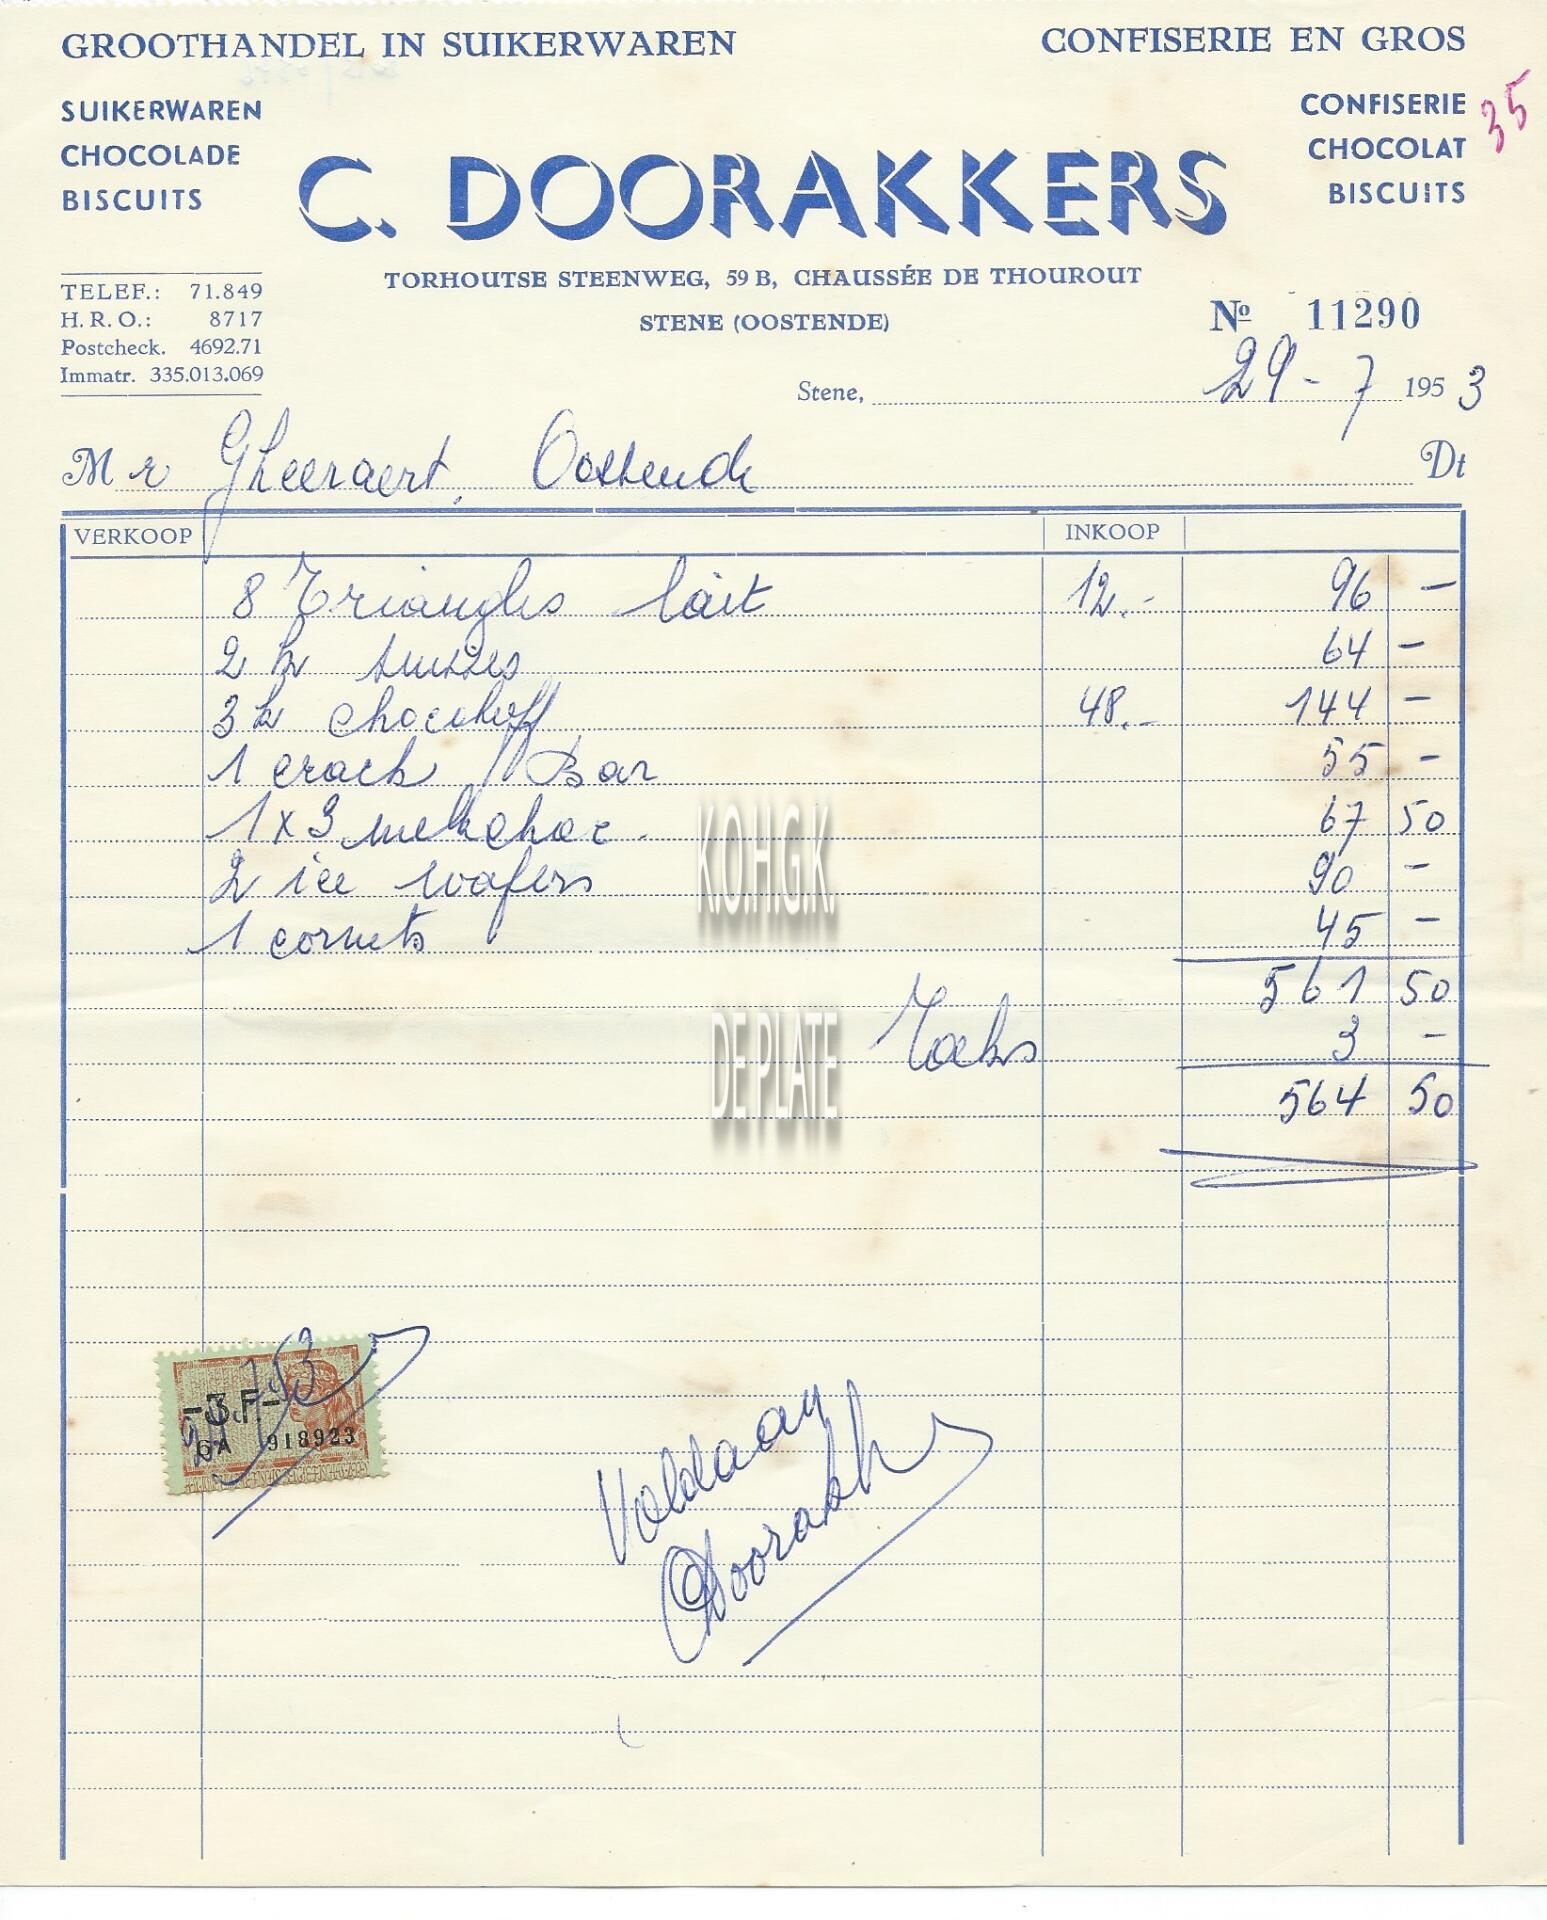 GROOTHANDEL IN SUIKERWAREN CONFISERIE EN GROS
SUIKERWAREN
CHOCOLADE
BISCUITS
CONFISERIE
CHOCOLAT
BISCUITS
35
C. DOORAKKERS
TORHOUTSE STEENWEG, 59 B, CHAUSSÉE DE THOUROUT
STENE (OOSTENDE)
TELEF.: 71.849
H. R. O.: 8717
Postcheck. 4692.71
Immatr. 335.013.069
Nº 11290
Stene, 29 - 7 1953
Mr Gheeraert, Oostende Dt
VERKOOP INKOOP
8 Triangles lait 12.- 96 -
2 k suisses 64 -
3 k chocotoff 48.- 144 -
1 crack Bar 55 -
1 x 3 melkchoc. 67 50
2 ice wafers 90 -
1 cornets 45 -
561 50
3 -
564 50
K.O.H.G.K.
DE PLATE
-3F-
6A 918923
Voldaan
Doorakk